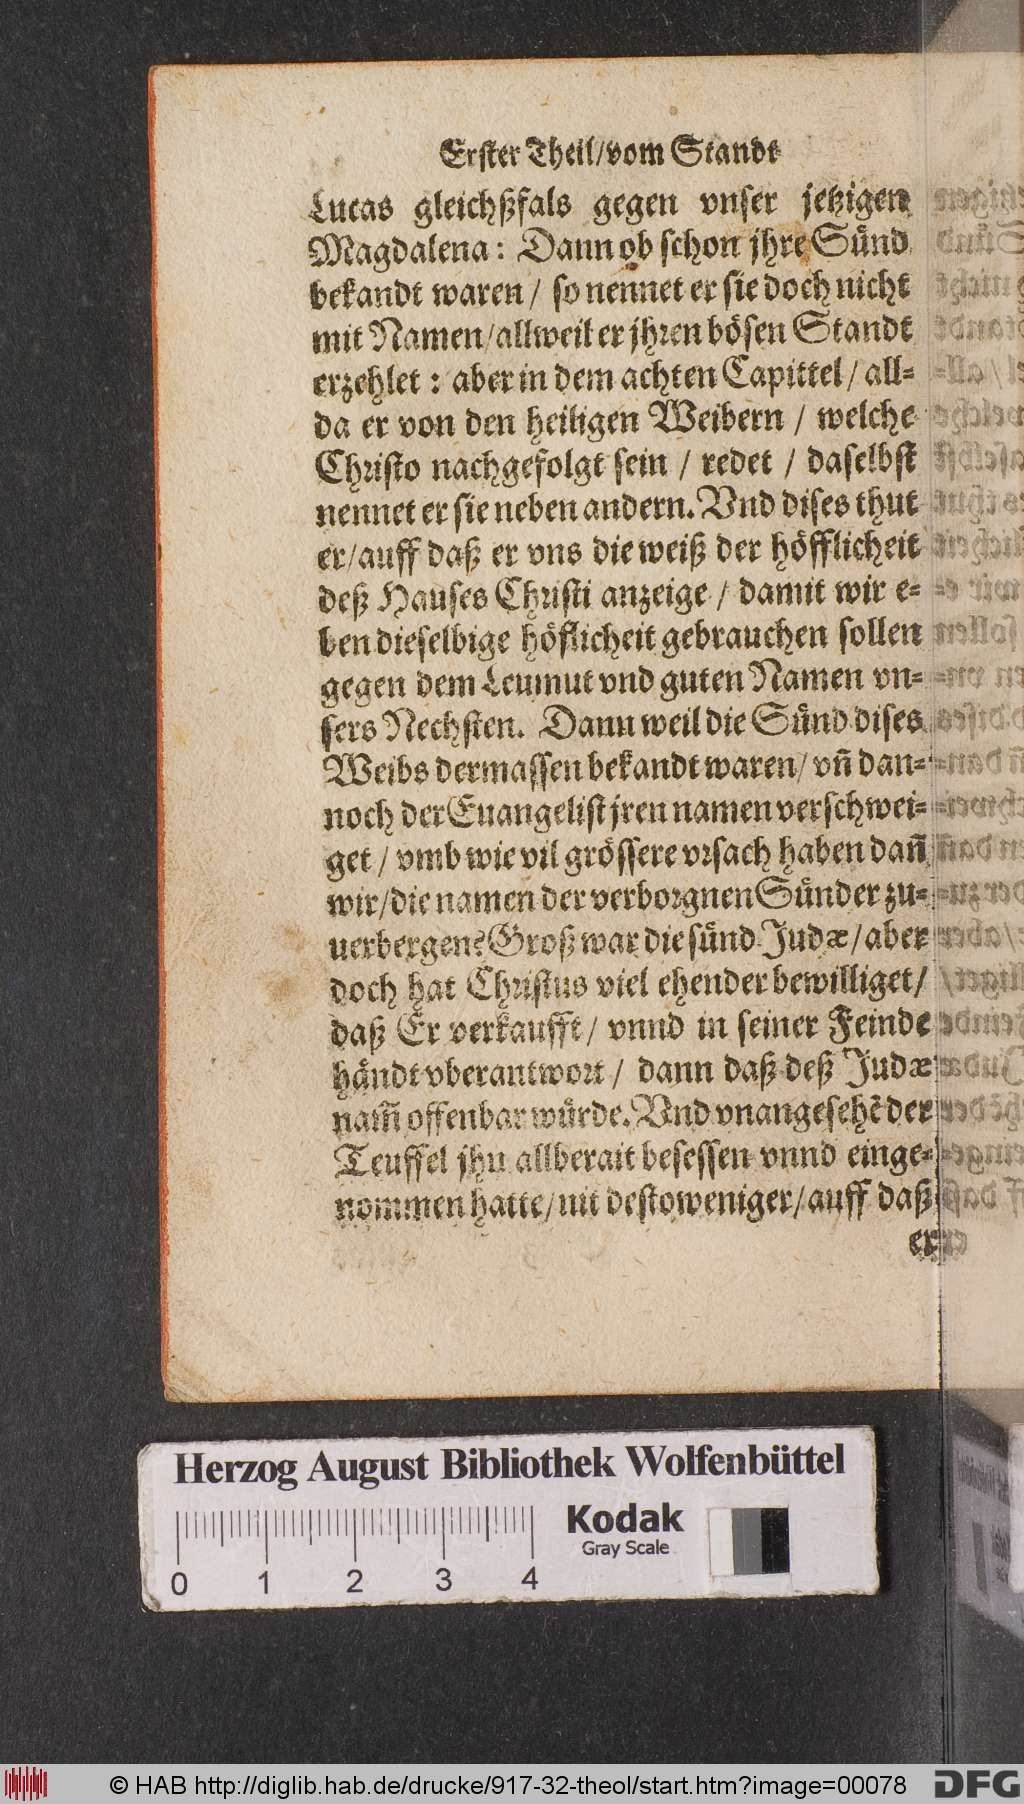 Erster Theil/vom Standt
Lucas gleichßfals gegen vnser jetzigen
Magdalena: Dann ob schon jhre Sünd
bekandt waren / so nennet er sie doch nicht
mit Namen/allweil er jhren bösen Standt
erzehlet : aber in dem achten Capittel / all-
da er von den heiligen Weibern / welche
Christo nachgefolgt sein / redet / daselbst
nennet er sie neben andern. Vnd dises thut
er/auff daß er vns die weiß der höfflicheit
deß Hauses Christi anzeige / damit wir e-
ben dieselbige höflicheit gebrauchen sollen
gegen dem Leumut vnd guten Namen vn-
sers Nechsten. Dann weil die Sünd dises
Weibs dermassen bekandt waren/ vñ dan-
noch der Euangelist jren namen verschwei-
get / vmb wie vil grössere vrsach haben dañ
wir/die namen der verborgnen Sünder zu-
uerbergen? Groß war die sünd Judæ/aber
doch hat Christus viel ehender bewilliget/
daß Er verkaufft/ vnnd in seiner Feinde
händt vberantwort / dann daß deß Judæ
nam̃ offenbar würde. Vnd vnangesehẽ der
Teuffel jhn allberait besessen vnnd einge-
nommen hatte/nit destoweniger/auff daß
er
Herzog August Bibliothek Wolfenbüttel
Kodak
Gray Scale
0 1 2 3 4
© HAB http://diglib.hab.de/drucke/917-32-theol/start.htm?image=00078
DFG